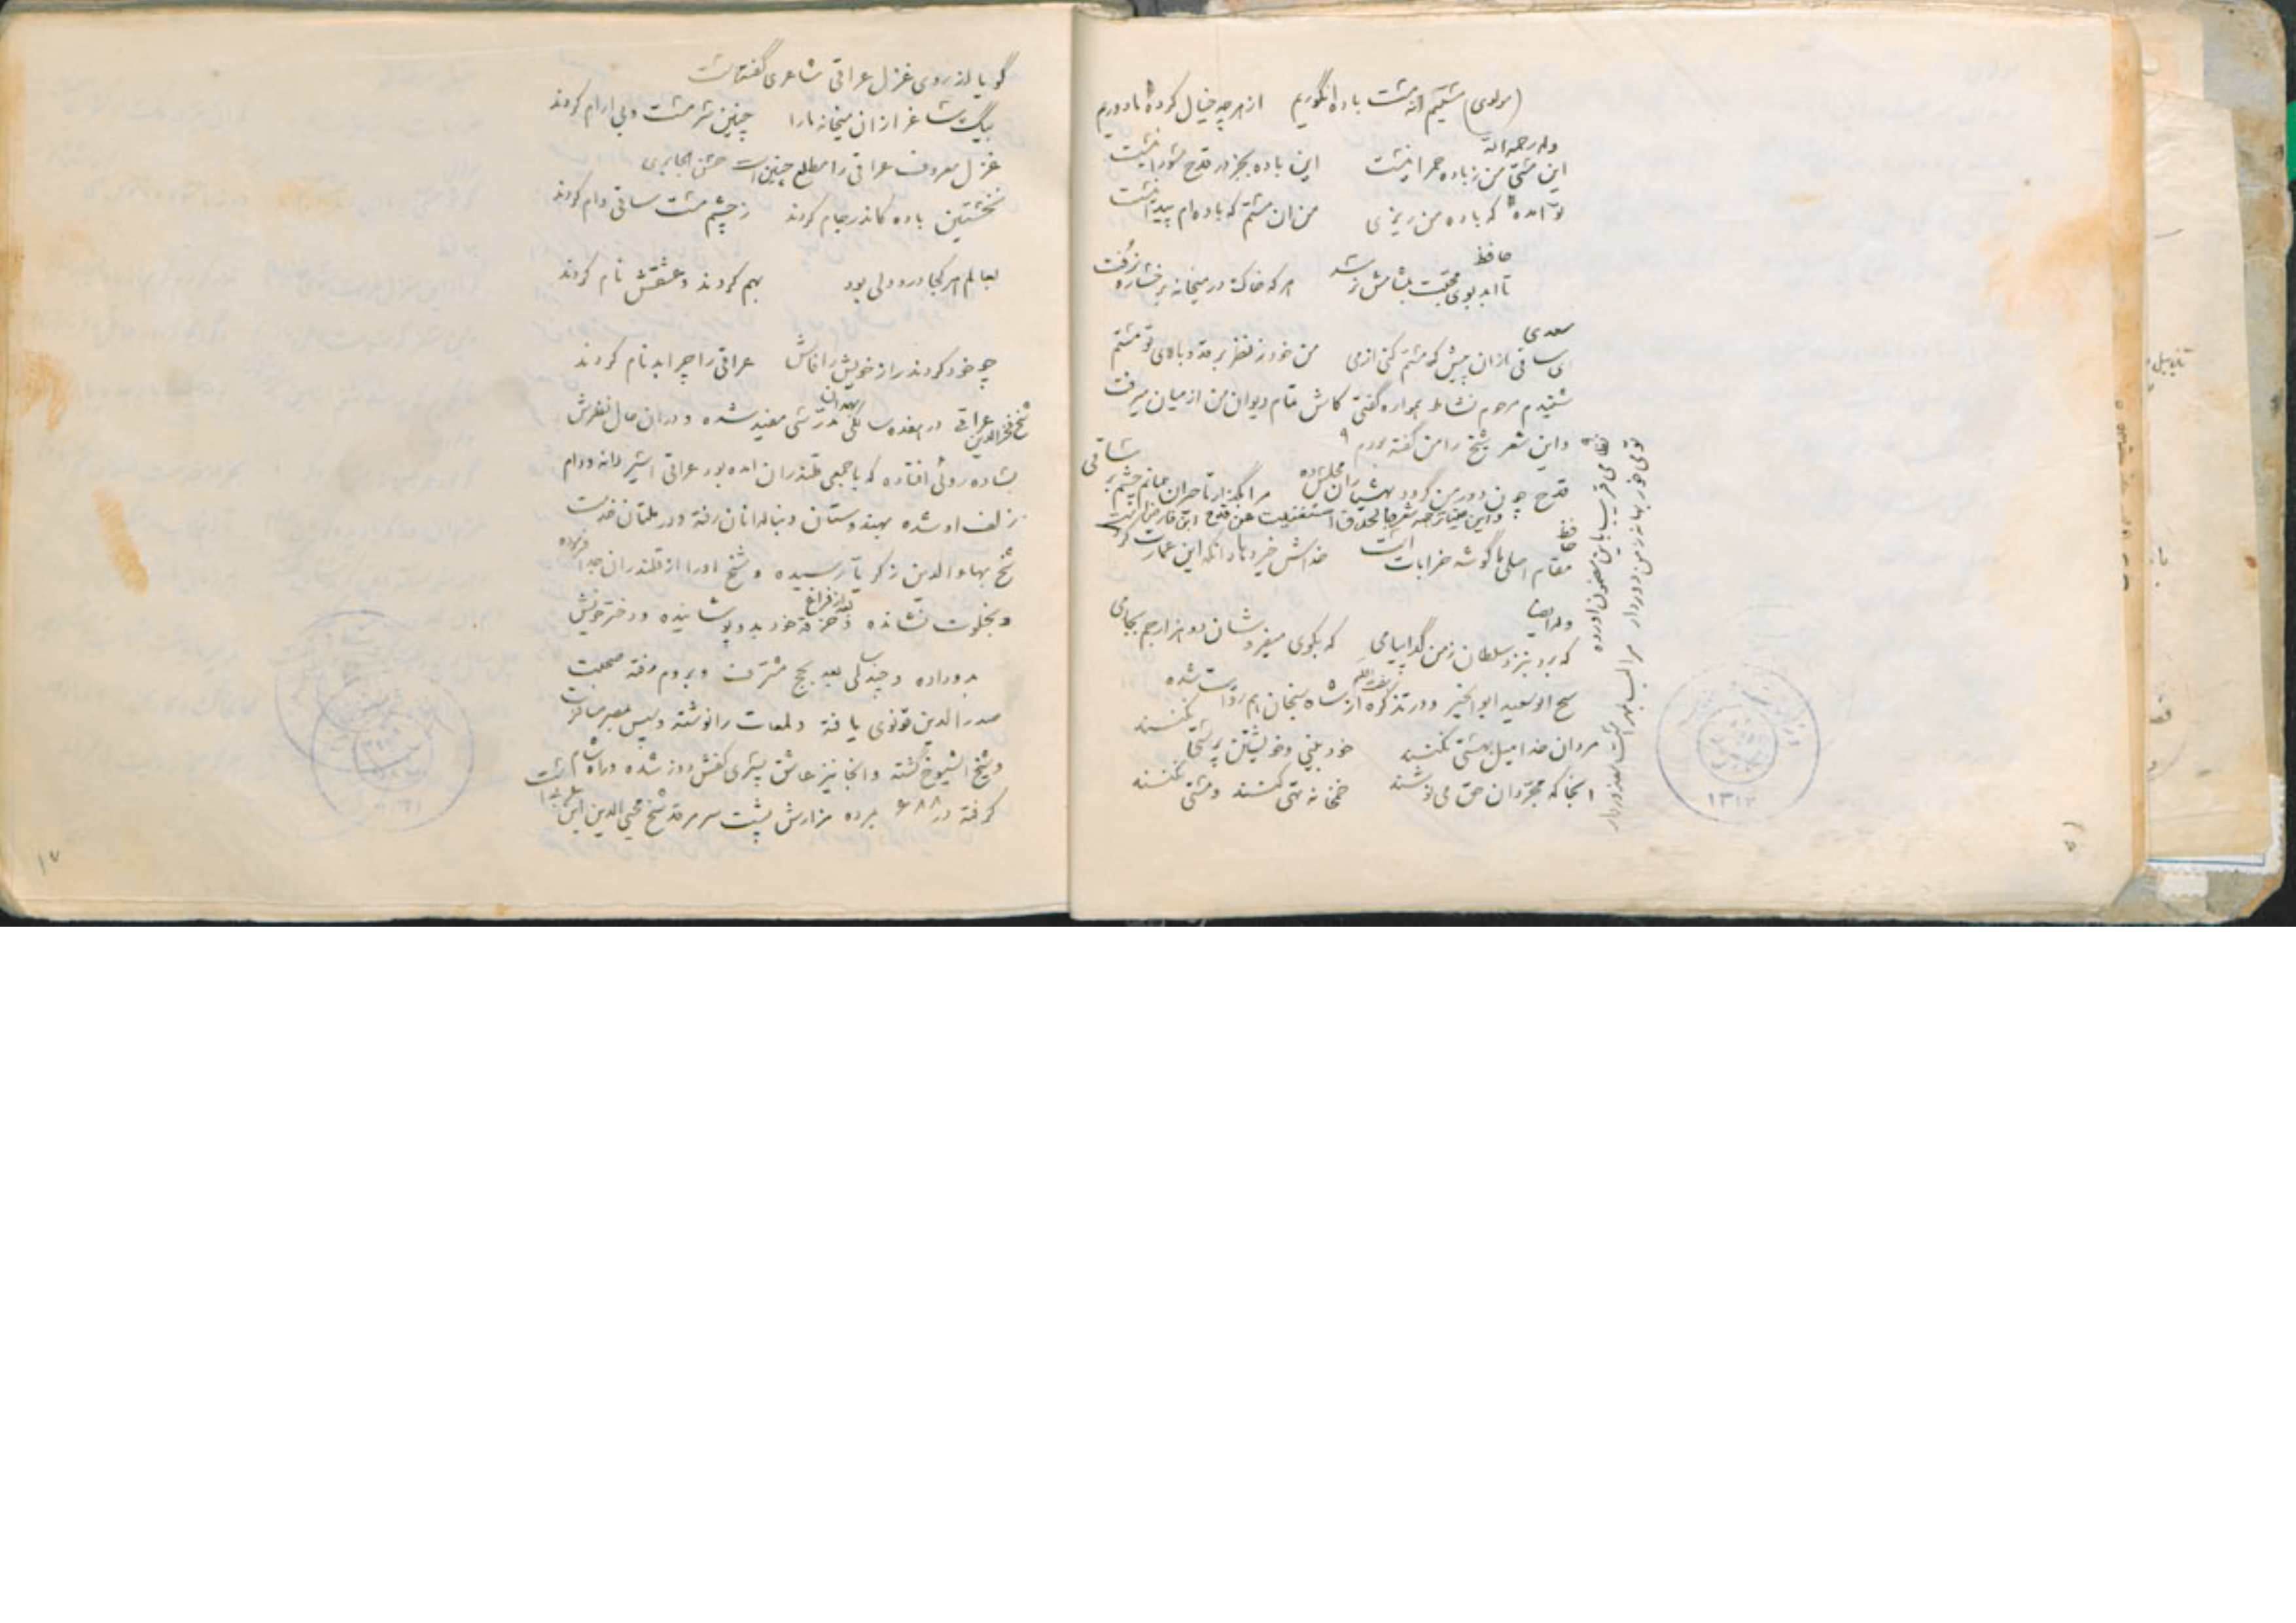 (مولوی) مستیم نه مست باده انگوریم از هر چه خیال کرده ما دوریم
وله رحمه الله
این مستی من زباده حمرا نیست این باده بجز در قدح سودا نیست
تو آمده که باده من ریزی من آن مستم که باده ام پیدا نیست
حافظ
تا ابد بوی محبت بمشامش نرسد هر که خاک در میخانه برخساره نرفت
سعدی
ای ساقی ازان پیش که مستم کنی از می من خود ز نظر بر قد و بالای تو مستم
شنیدم مرحوم نشاط همواره گفتی کاش تمام دیوان من از میان میرفت
و این شعر شیخ را من گفته بودم
قدح چون دور من گردد بهشیاران مجلس ده مرا بگذار تا حیران بمانم چشم بر ساقی
حافظ
مقام اصلی ما گوشه خرابات است خداش خیر دهاد انکه این عمارت کرد
وله ایضا
که برد بنزد سلطان ز من گدا پیامی که بکوی میفروشان دو هزار جم بجامی
شیخ ابوسعید ابوالخیر و در تذکره از شاه سنجان هم روایت شده
مردان خدا میل بهستی نکنند خود بینی و خویشتن پرستی نکنند
انجا که مجردان حق می نوشند خمخانه تهی کنند و مستی نکنند
نظامی قریب باین مضمون آورده
تو می خور بهانه ز من دور دار مرا لب بمهر است معذور دار
گویا از روی غزل عراقی شاعری گفته است
بیک ساغر ازان میخانه ما را چنین سرمست و بی ارام کردند
غزل معروف عراقی را مطلع چنین است
نخستین باده کاندر جام کردند ز چشم مست ساقی وام کردند
بعالم هر کجا درد دلی بود بهم کردند و عشقش نام کردند
چو خود کردند راز خویش را فاش عراقی را چرا بدنام کردند
شیخ فخرالدین عراقی در هفده سالگی بهمدان مدرسی مفید شده و دران حال نظرش
بساده روئی افتاده که با جمعی قلندران امده بود عراقی اسیر دانه و دام
زلف او شده بهندوستان دنباله انان رفته و در ملتان خدمت
شیخ بهاءالدین زکریا رسیده و شیخ او را از قلندران جدا فرموده
و بخلوت نشانده و بعد از فراغ خرقه خود بدو پوشانیده و دختر خویش
بدو داده و چندی بعد بحج مشرف و بروم رفته صحبت
صدرالدین قونوی یافته و لمعات را نوشته و پس بمصر مسافرت
و شیخ الشیوخ گشته و انجا نیز عاشق پسری کفش دوز شده و راه شام
گرفته در ۶۸۸ مرده مزارش پشت سر مرقد شیخ محیی الدین ابن عربی است
۱۳۱۳
۱۷